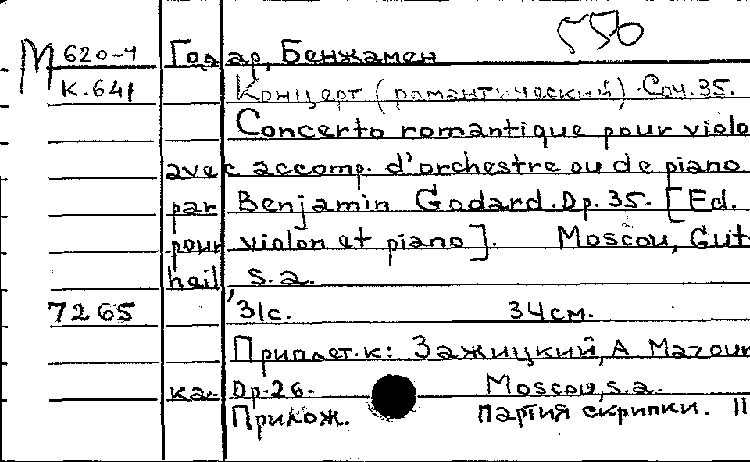 550
М 620-4 Годар, Бенжамен
К.641 Концерт (романтический). Соч.35.
Concerto romantique pour violo
avec accomp. d'orchestre ou de piano
par Benjamin Godard. Op. 35. [Ed.
pour violon et piano]. Moscou, Gut
heil s.a.
7265 31с. 34см.
Приплет.к: Зажицкий, А Mazour
ка. Op.26. Moscou, s.a.
Прилож. партия скрипки. 11